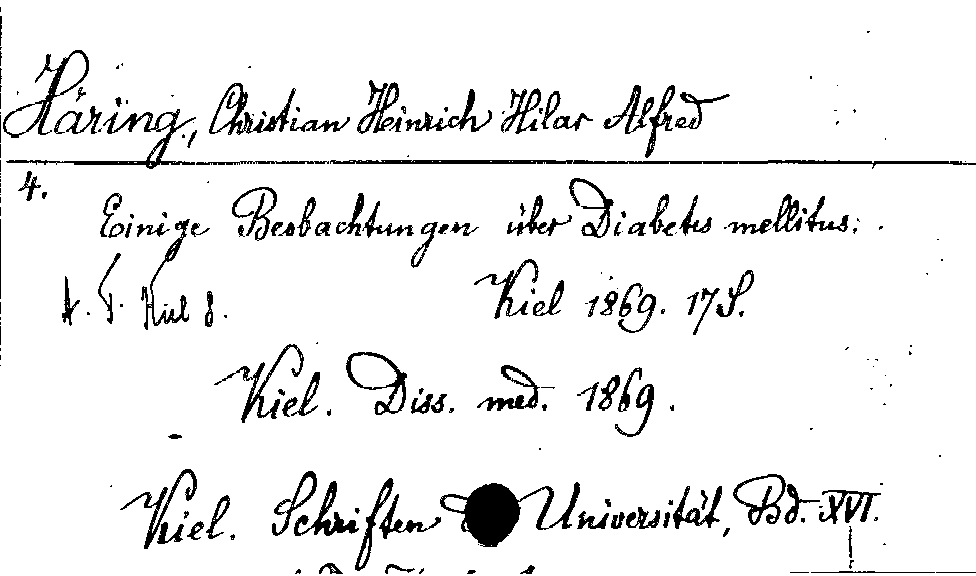 Häring, Christian Heinrich Hilar Alfred
4.
Einige Beobachtungen über Diabetes mellitus.
Kiel 8. Kiel 1869. 17 S.
Kiel. Diss. med. 1869.
Kiel. Schriften Universität, Bd. XVI.